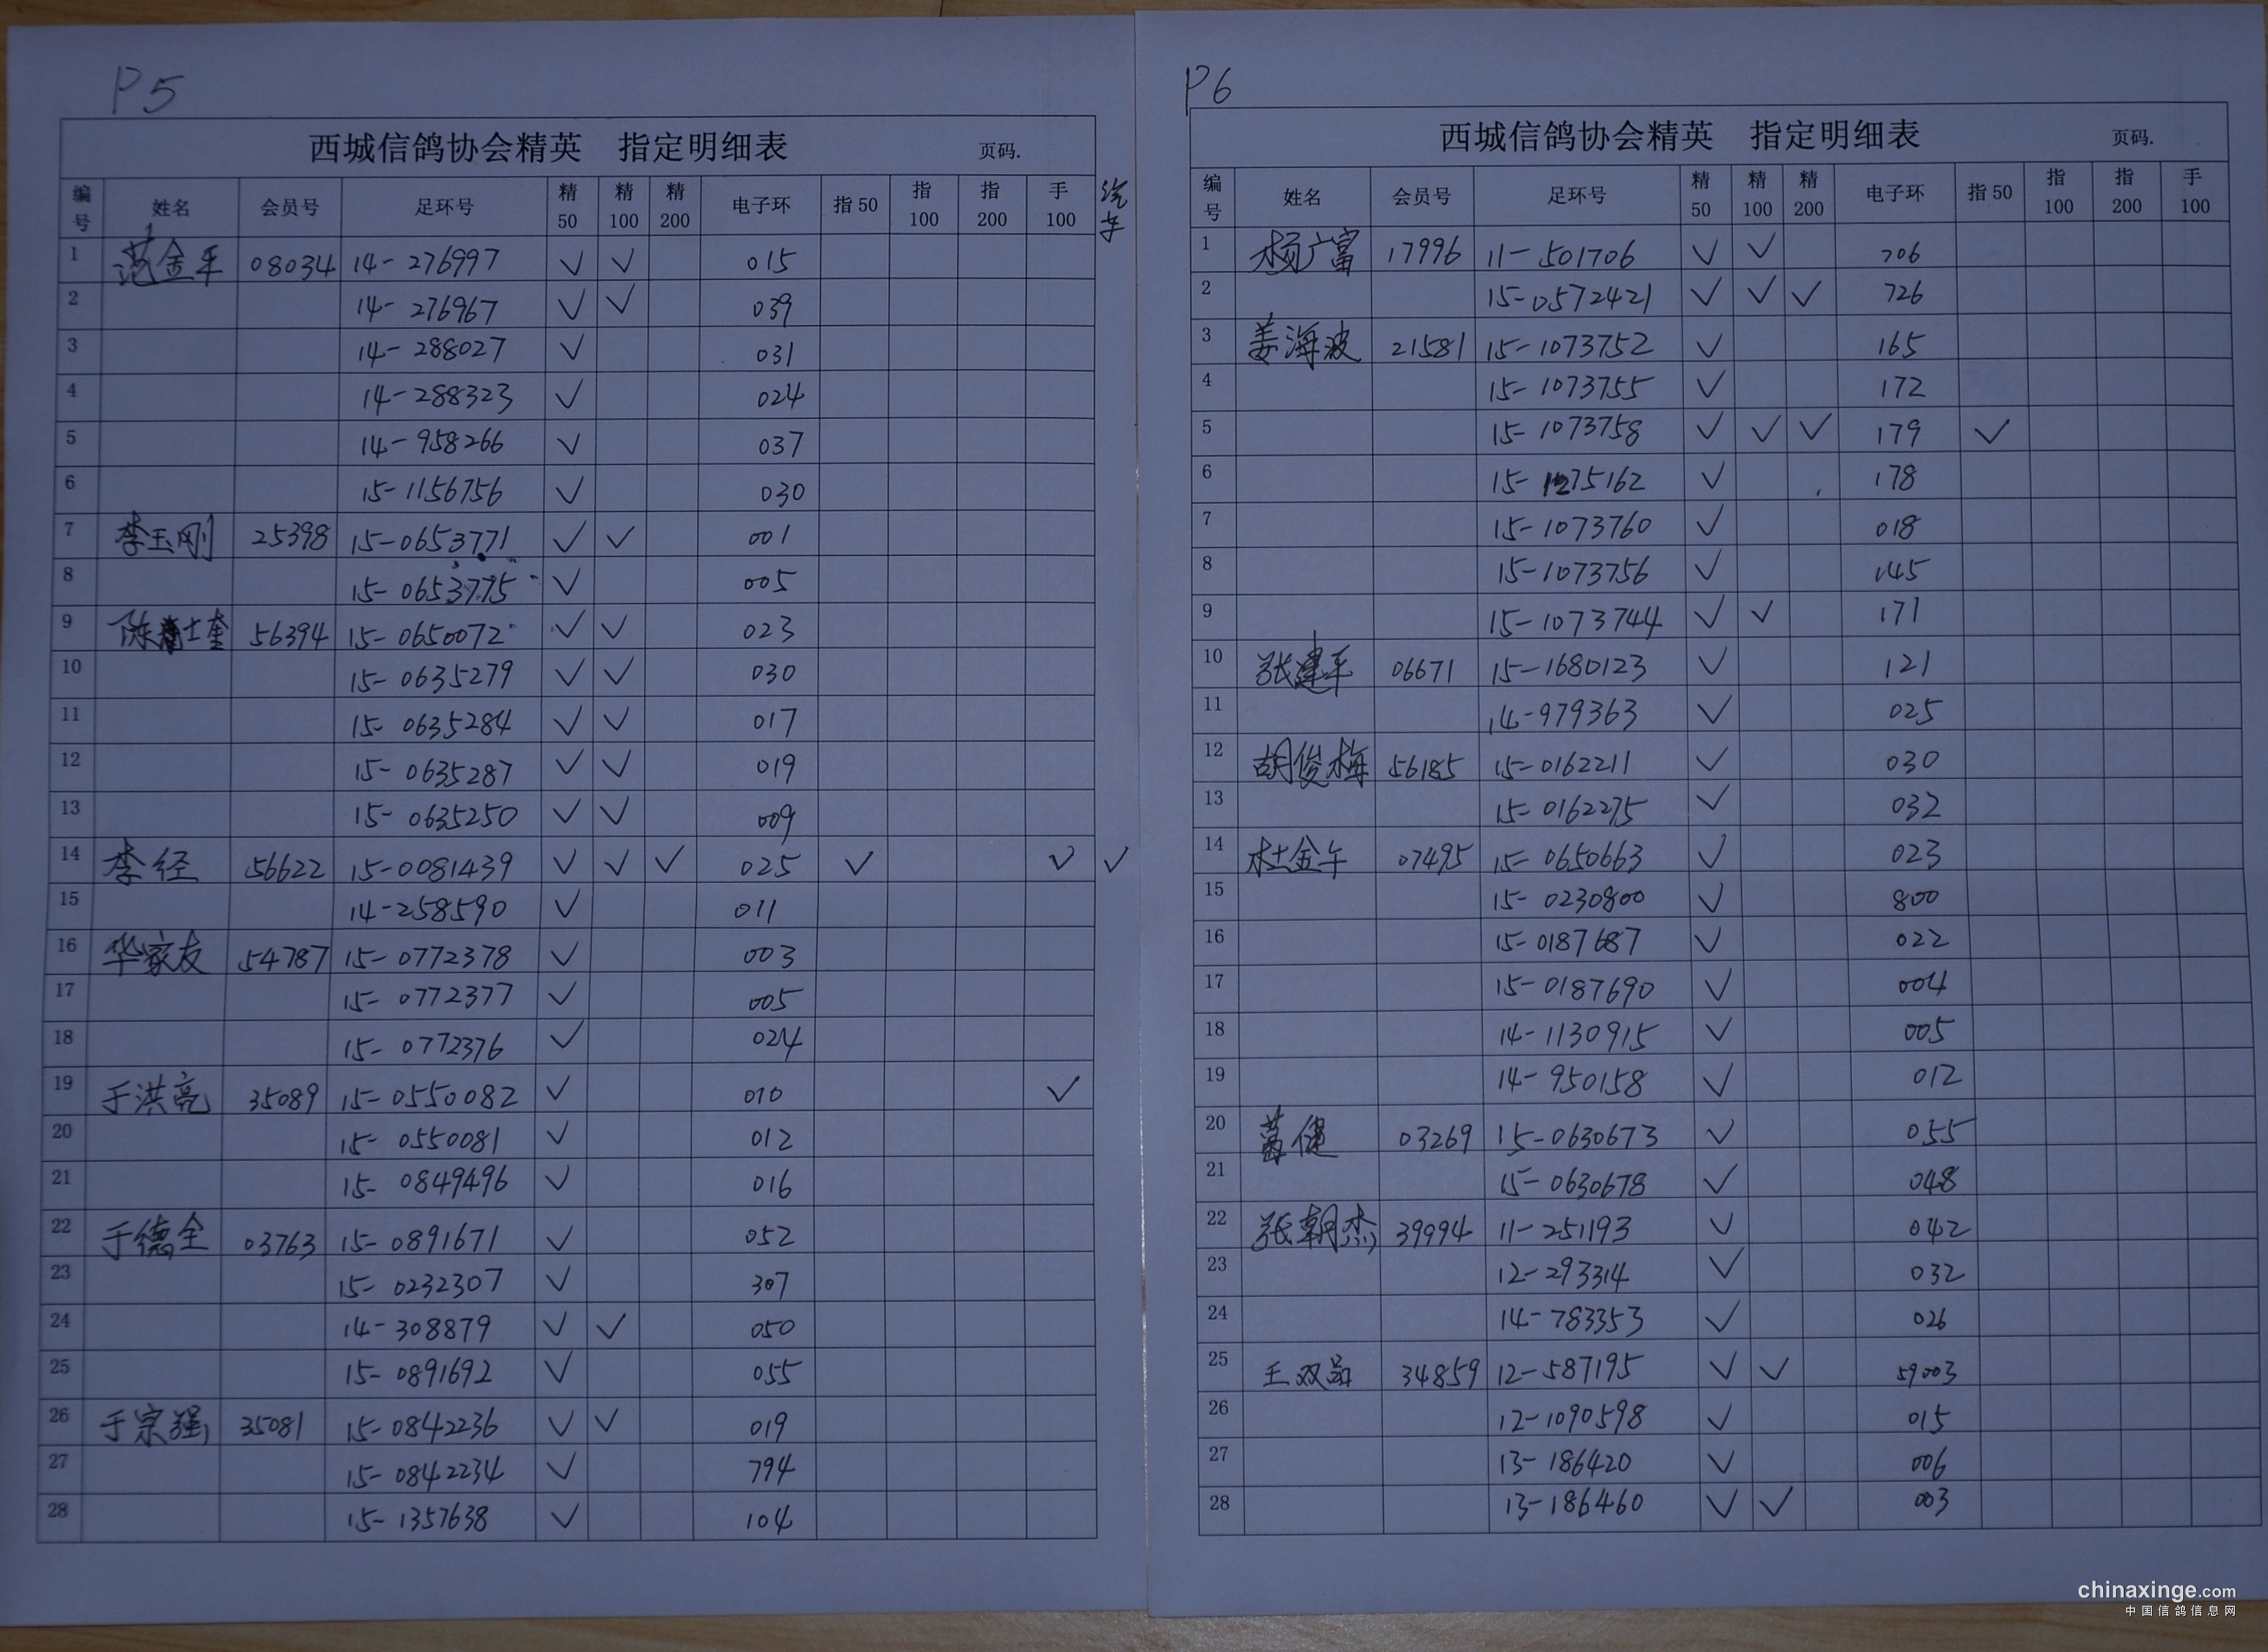 P5
西城信鸽协会精英 指定明细表 页码.
编号 姓名 会员号 足环号 精50 精100 精200 电子环 指50 指100 指200 手100 汽车
1 范金平 08034 14-276997 ✓ ✓ 015
2 14-276967 ✓ ✓ 039
3 14-288027 ✓ 031
4 14-288323 ✓ 024
5 14-958266 ✓ 037
6 15-1156756 ✓ 030
7 李玉刚 25398 15-0653771 ✓ ✓ 001
8 15-0653775 ✓ 005
9 陈士奎 56394 15-0650072 ✓ ✓ 023
10 15-0635279 ✓ ✓ 030
11 15-0635284 ✓ ✓ 017
12 15-0635287 ✓ ✓ 019
13 15-0635250 ✓ ✓ 009
14 李经 56622 15-0081439 ✓ ✓ ✓ 025 ✓ ✓ ✓
15 14-258590 ✓ 011
16 华家友 54787 15-0772378 ✓ 003
17 15-0772377 ✓ 005
18 15-0772376 ✓ 024
19 于洪亮 35089 15-0550082 ✓ 010 ✓
20 15-0550081 ✓ 012
21 15-0849496 ✓ 016
22 于德全 03763 15-0891671 ✓ 052
23 15-0232307 ✓ 307
24 14-308879 ✓ ✓ 050
25 15-0891692 ✓ 055
26 于宗强 35081 15-0842236 ✓ ✓ 019
27 15-0842234 ✓ 794
28 15-1357638 ✓ 104
P6
西城信鸽协会精英 指定明细表 页码.
编号 姓名 会员号 足环号 精50 精100 精200 电子环 指50 指100 指200 手100
1 杨广富 17996 11-501706 ✓ ✓ 706
2 15-0572421 ✓ ✓ ✓ 726
3 姜海波 21581 15-1073752 ✓ 165
4 15-1073755 ✓ 172
5 15-1073758 ✓ ✓ ✓ 179 ✓
6 15-1275162 ✓ 178
7 15-1073760 ✓ 018
8 15-1073756 ✓ 145
9 15-1073744 ✓ ✓ 171
10 张建平 06671 15-1680123 ✓ 121
11 14-979363 ✓ 025
12 胡俊梅 56185 15-0162211 ✓ 030
13 15-0162275 ✓ 032
14 杜金午 07495 15-0650663 ✓ 023
15 15-0230800 ✓ 800
16 15-0187687 ✓ 022
17 15-0187690 ✓ 004
18 14-1130915 ✓ 005
19 14-950158 ✓ 012
20 健 03269 15-0630673 ✓ 055
21 15-0630678 ✓ 048
22 张朝杰 39994 11-251193 ✓ 042
23 12-293314 ✓ 032
24 14-783353 ✓ 026
25 王双 34859 12-587195 ✓ ✓ 59003
26 12-1090598 ✓ 015
27 13-186420 ✓ 006
28 13-186460 ✓ ✓ 003
chinaxinge.com
中国信鸽信息网